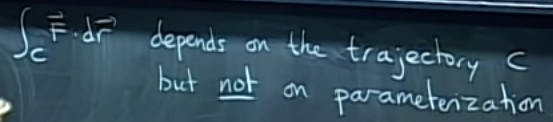 ∫_C F⃗·dr⃗ depends on the trajectory C
but not on parameterization